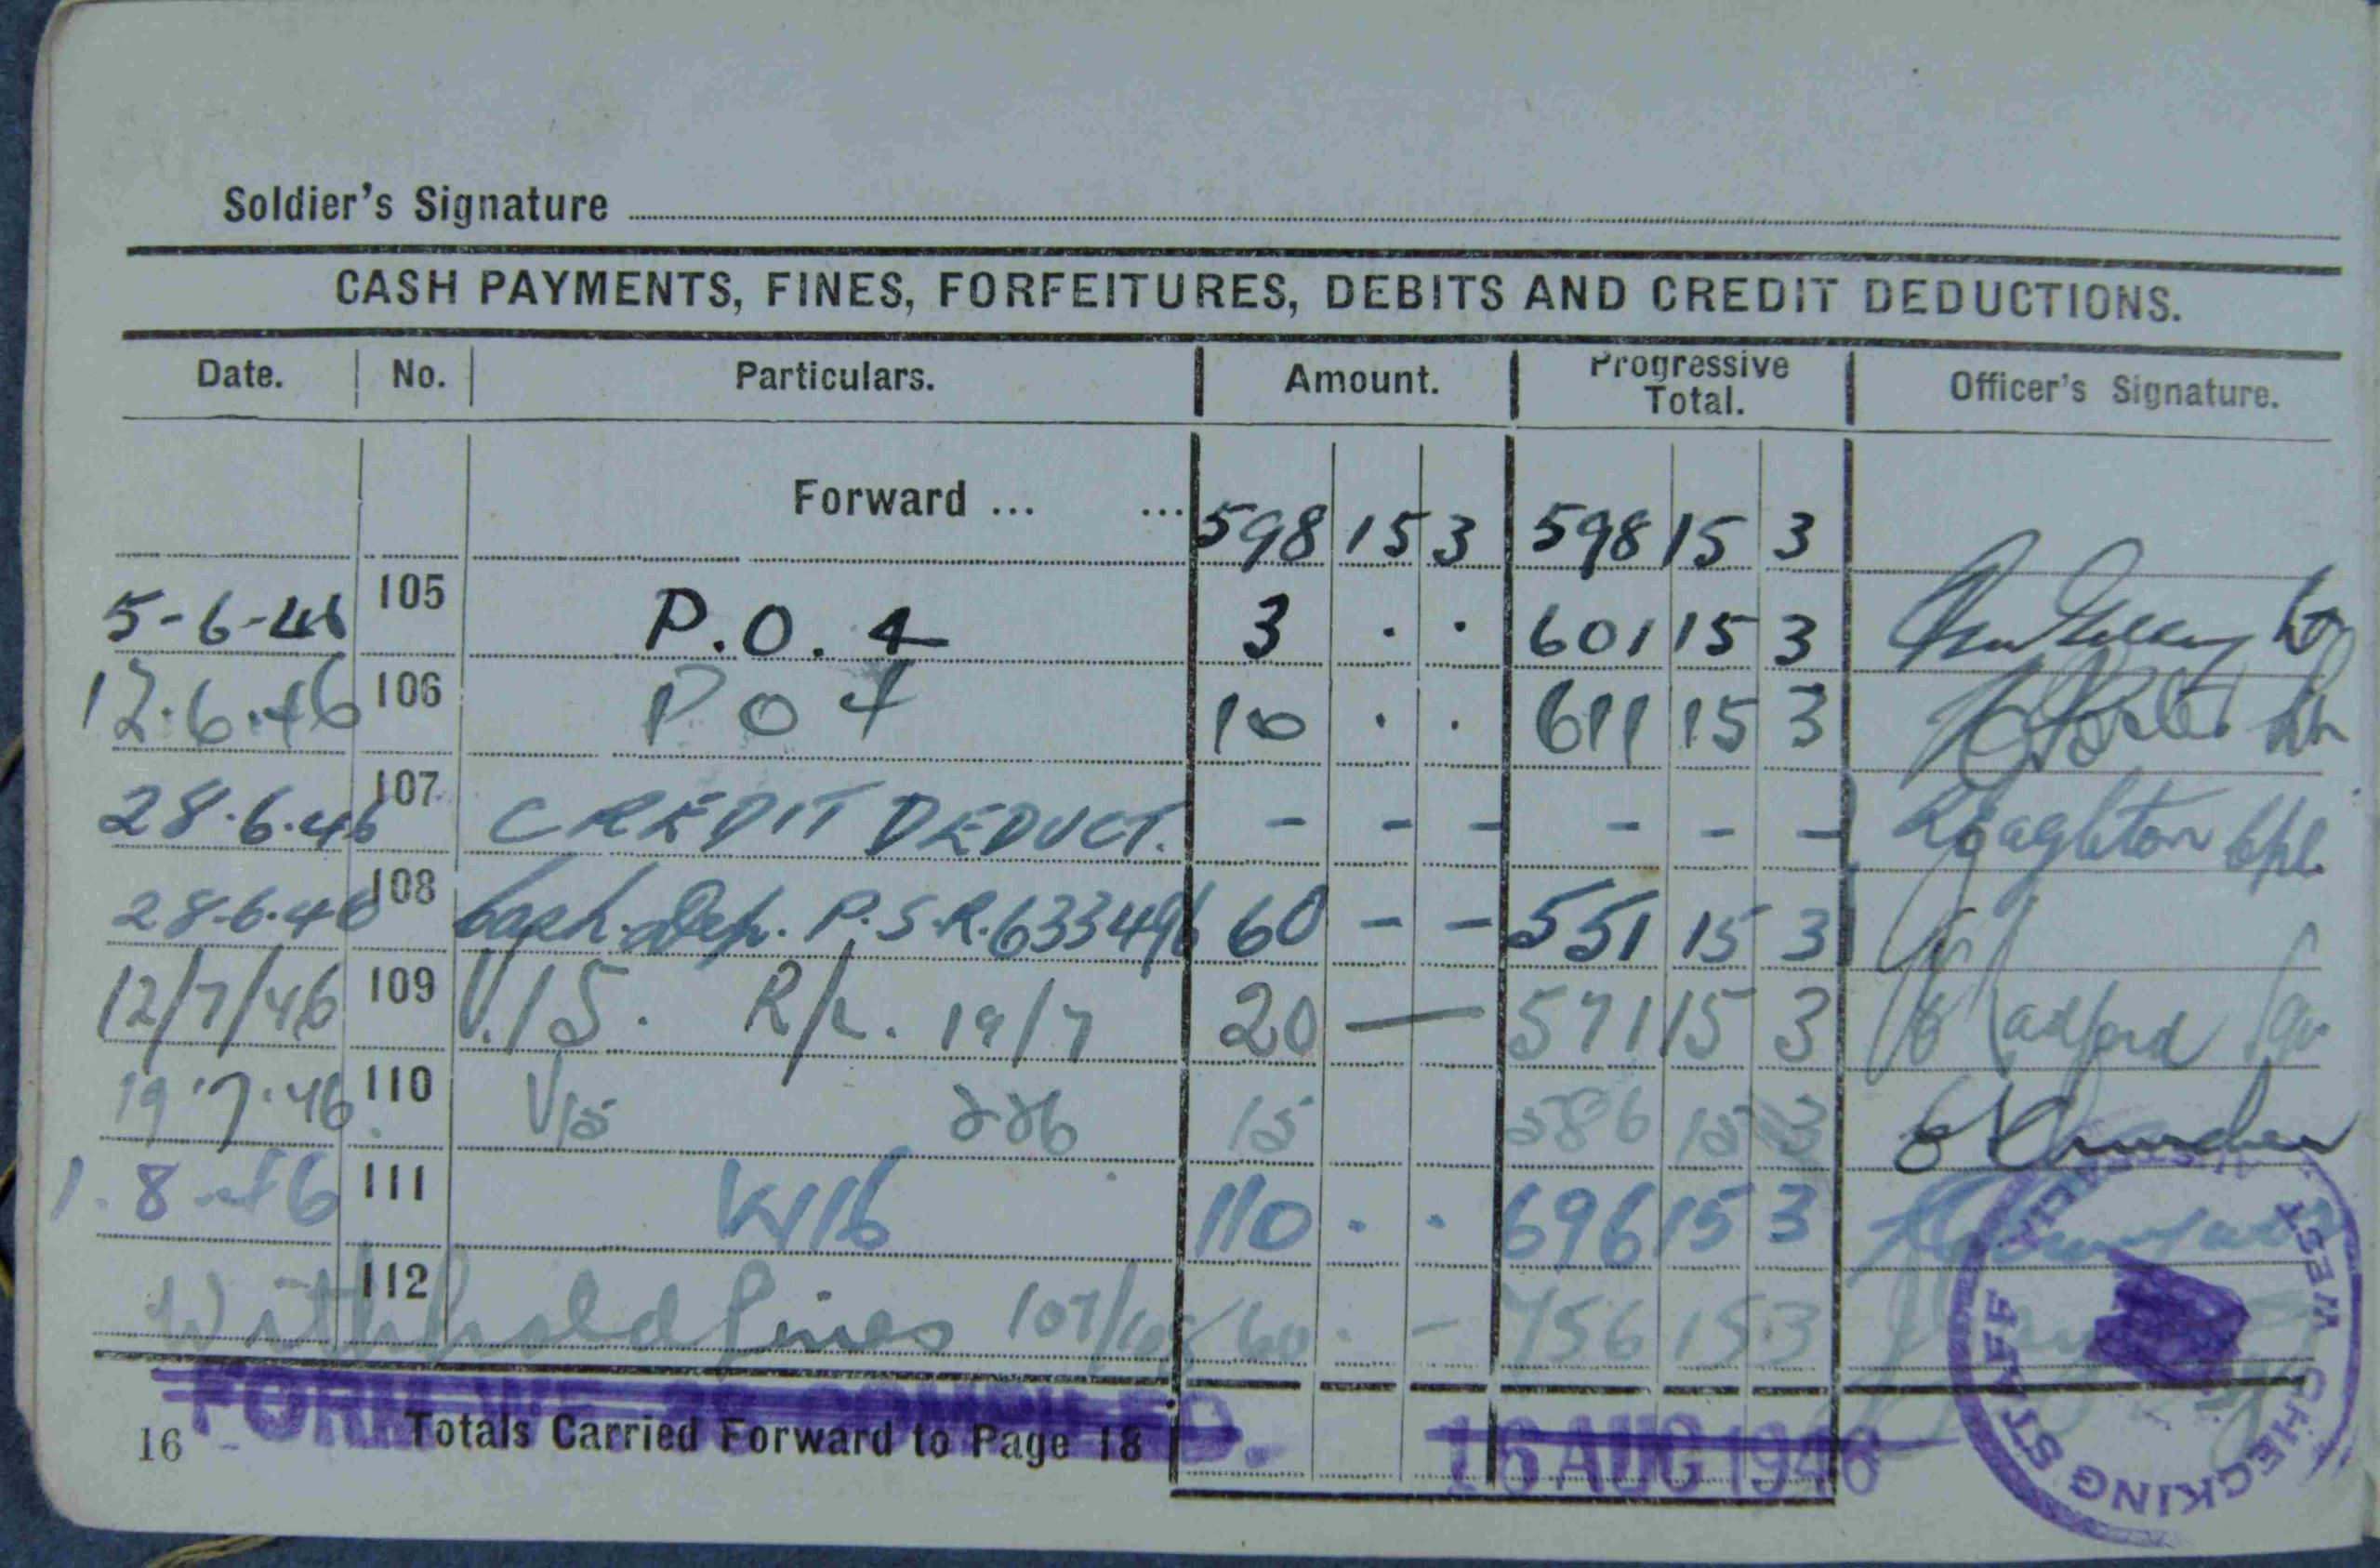 Soldier's Signature
CASH PAYMENTS, FINES, FORFEITURES, DEBITS AND CREDIT DEDUCTIONS.
Date. No. Particulars. Amount. Progressive Total. Officer's Signature.
Forward ... ... 598 15 3 598 15 3
5-6-46 105 P.O. 4 3 . . 601 15 3
12.6.46 106 P O 4 10 . . 611 15 3
28.6.46 107 CREDIT DEDUCT. - - - - - - Eagleton Cpl.
28.6.46 108 Cash. Dep. P.S.R. 633496 60 - - 551 15 3
12/7/46 109 V.15. R/L. 19/7 20 — 571 15 3 Radford
19.7.46 110 V15 226 15 586 15 3
1.8.46 111 110 . . 696 15 3
112 Withhold lines 107/108 60 . - 756 15 3
FORM COMPILED.
16 Totals Carried Forward to Page 18
16 AUG 1946
WEST CHECKING STAFF